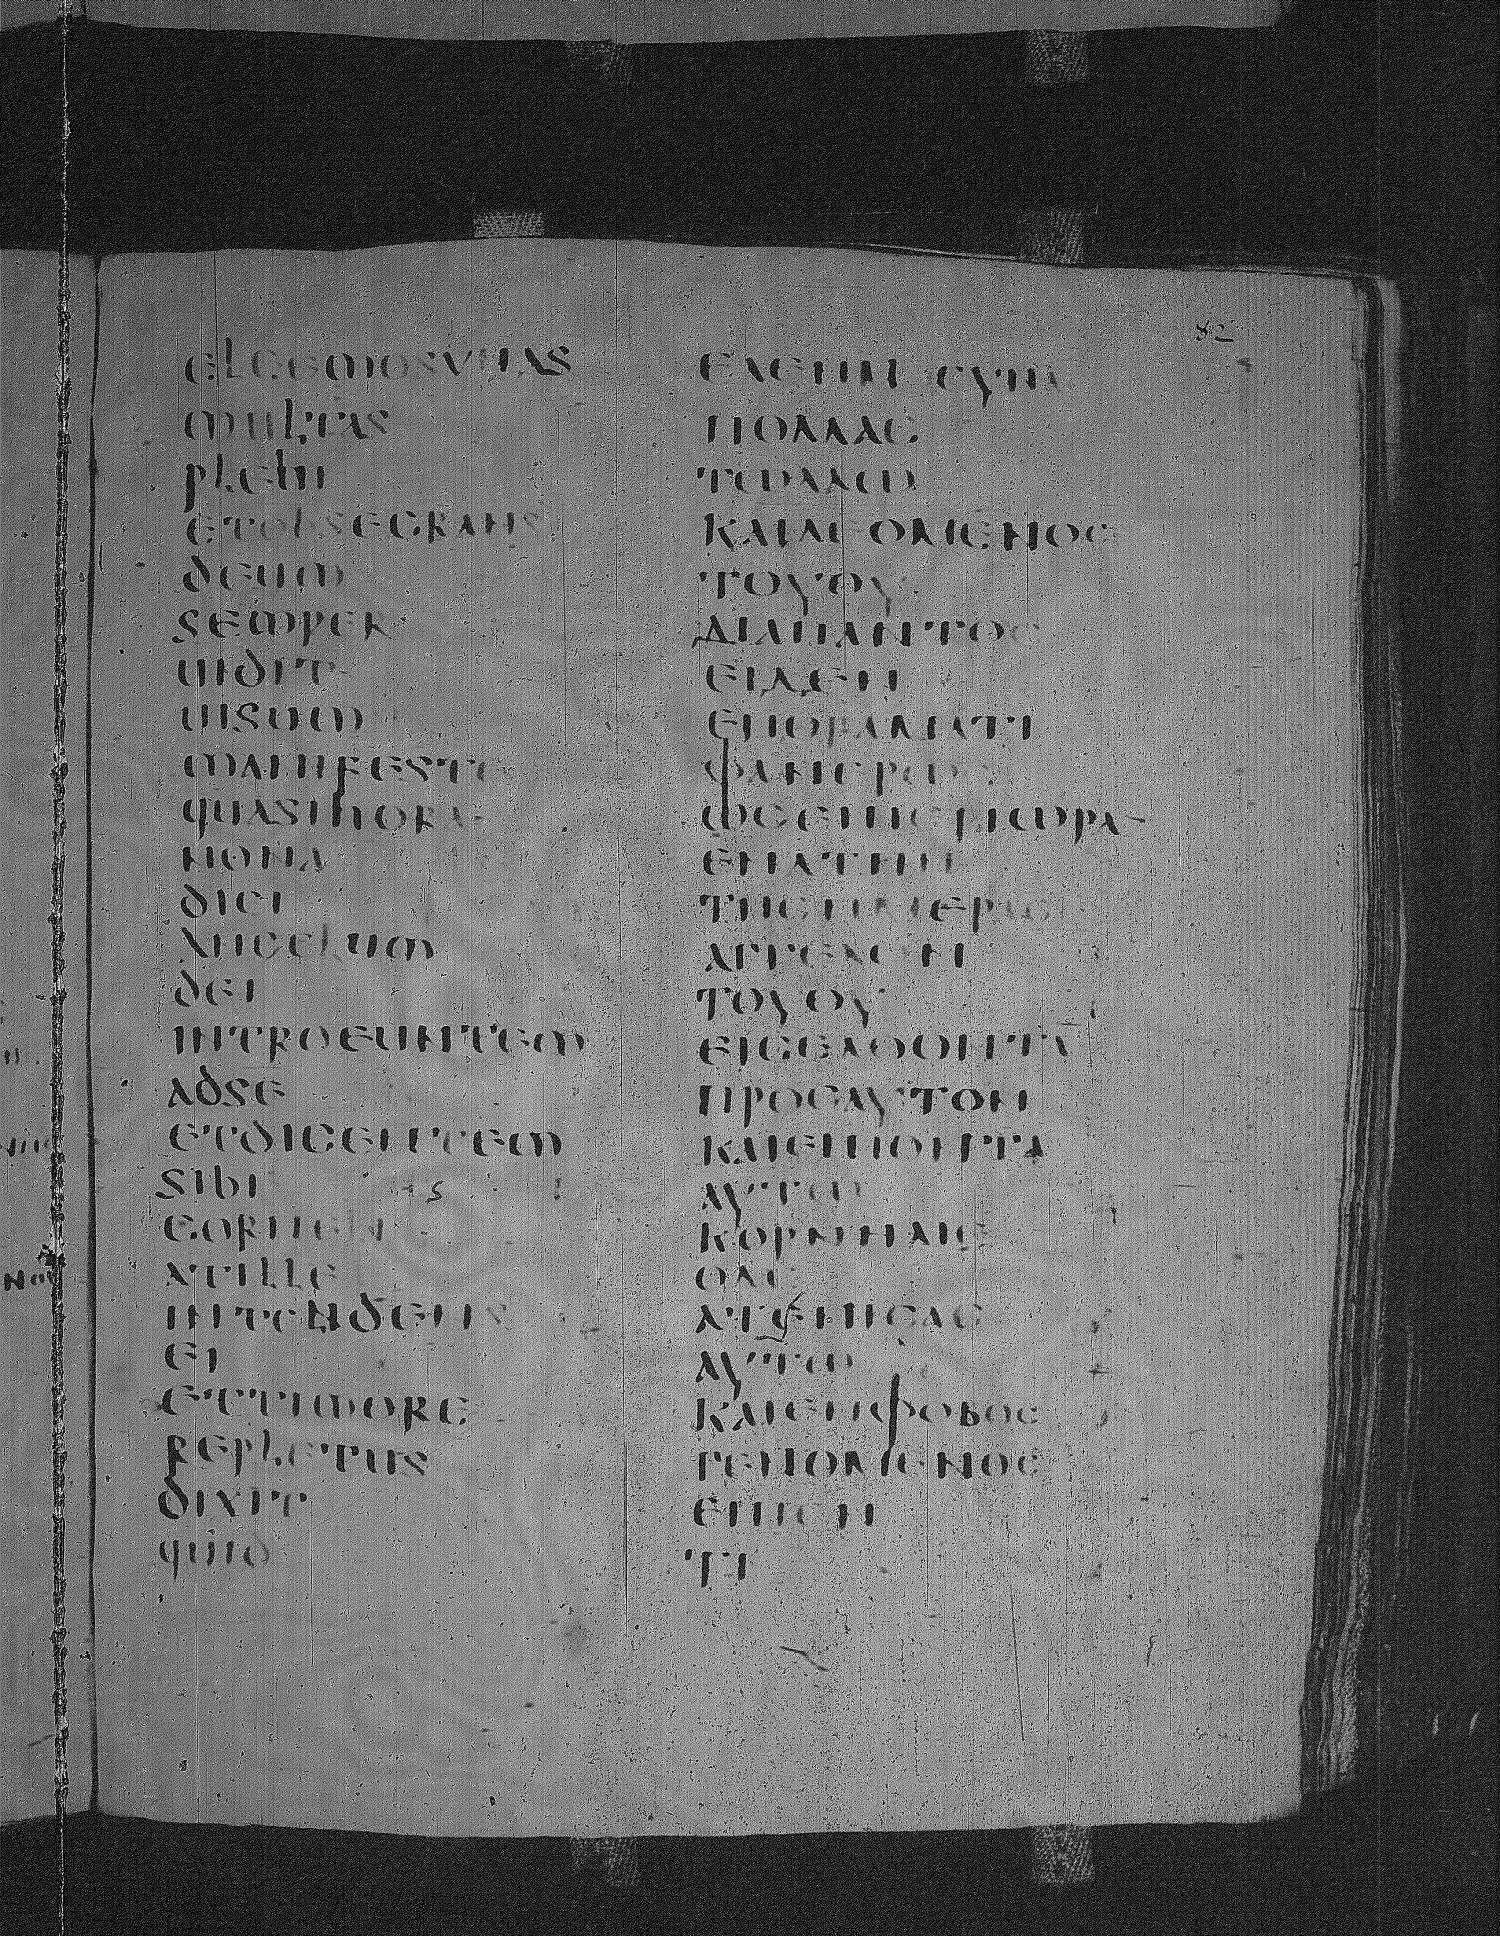 eleemosynas
multas
plebi
et obsecrans
deum
semper
uidit
uisum
manifeste
quasi hora
nona
diei
angelum
dei
introeuntem
ad se
et dicentem
sibi
corneli
at ille
intendens
ei
et timore
repletus
dixit
quid
82
ΕΛΕΗΜΟϹΥΝΑϹ
ΠΟΛΛΑϹ
ΤΩΛΑΩ
ΚΑΙΔΕΟΜΕΝΟϹ
ΤΟΥΘΥ
ΔΙΑΠΑΝΤΟϹ
ΕΙΔΕΝ
ΕΝΟΡΑΜΑΤΙ
ΦΑΝΕΡΩϹ
ΩϹΕΙΠΕΡΙΩΡΑ
ΕΝΑΤΗΝ
ΤΗϹΗΜΕΡΑϹ
ΑΓΓΕΛΟΝ
ΤΟΥΘΥ
ΕΙϹΕΛΘΟΝΤΑ
ΠΡΟϹΑΥΤΟΝ
ΚΑΙΕΙΠΟΝΤΑ
ΑΥΤΩ
ΚΟΡΝΗΛΙΕ
ΟΔΕ
ΑΤΕΝΙϹΑϹ
ΑΥΤΩ
ΚΑΙΕΝΦΟΒΟϹ
ΓΕΝΟΜΕΝΟϹ
ΕΙΠΕΝ
ΤΙ